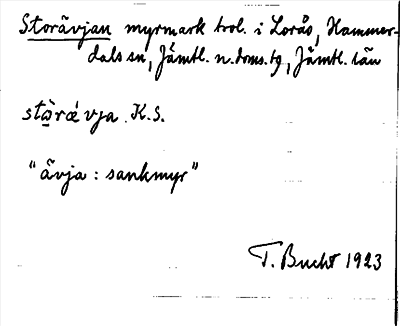 Storävjan myrmark trol. i Lorås, Hammer-
dals sn, Jämtl. n. doms. tg, Jämtl. län
K.S.
"ävja : sankmyr"
T. Bucht 1923